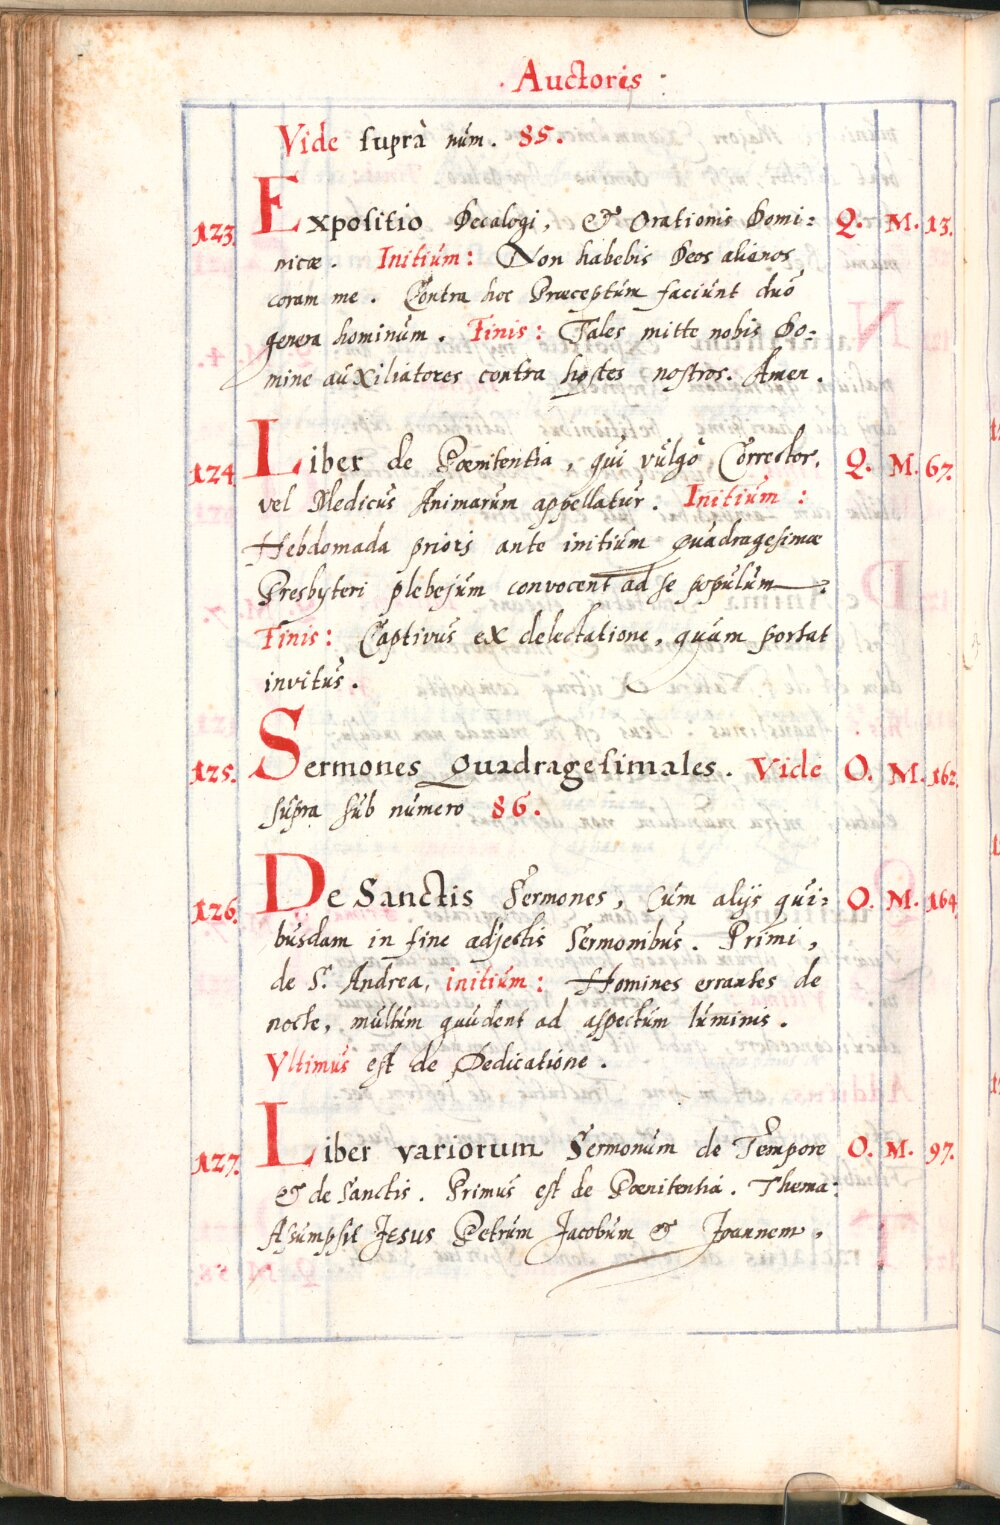 . Auctoris :
Vide suprà núm. 85.
123. Expositio Decalogi, & Orationis Domi: Q. M. 13.
nicæ. Initiúm: Non habebis Deos alienos
coram me. Contra hoc Præceptúm faciúnt dúo
genera hominúm. Finis: Tales mitte nobis Do-
mine aúxiliatores contra hostes nostros. Amen.
124. Liber de Pœnitentia, qúi vúlgò Corrector, Q. M. 67.
vel Medicús Animarúm appellatúr. Initiúm:
Hebdomada prioris ante initiúm Qúadragesimæ
Presbyteri plebejúm convocent ad se popúlúm.
Finis: Captivús ex delectatione, qúam portat
invitús.
125. Sermones Quadragesimales. Vide O. M. 162.
súpra súb número 86.
126. De Sanctis Sermones, Cúm alijs qúi: O. M. 164.
búsdam in fine adjectis Sermonibús. Primi,
de S. Andrea, initiúm: Homines errantes de
nocte, múltúm gaúdent ad aspectúm lúminis.
Vltimús est de Dedicatione.
127. Liber variorum Sermonúm de Tempore O. M. 97.
& de Sanctis. Primús est de Pœnitentia. Thema:
Asúmpsit JESUS Petrúm Jacobúm & Joannem,